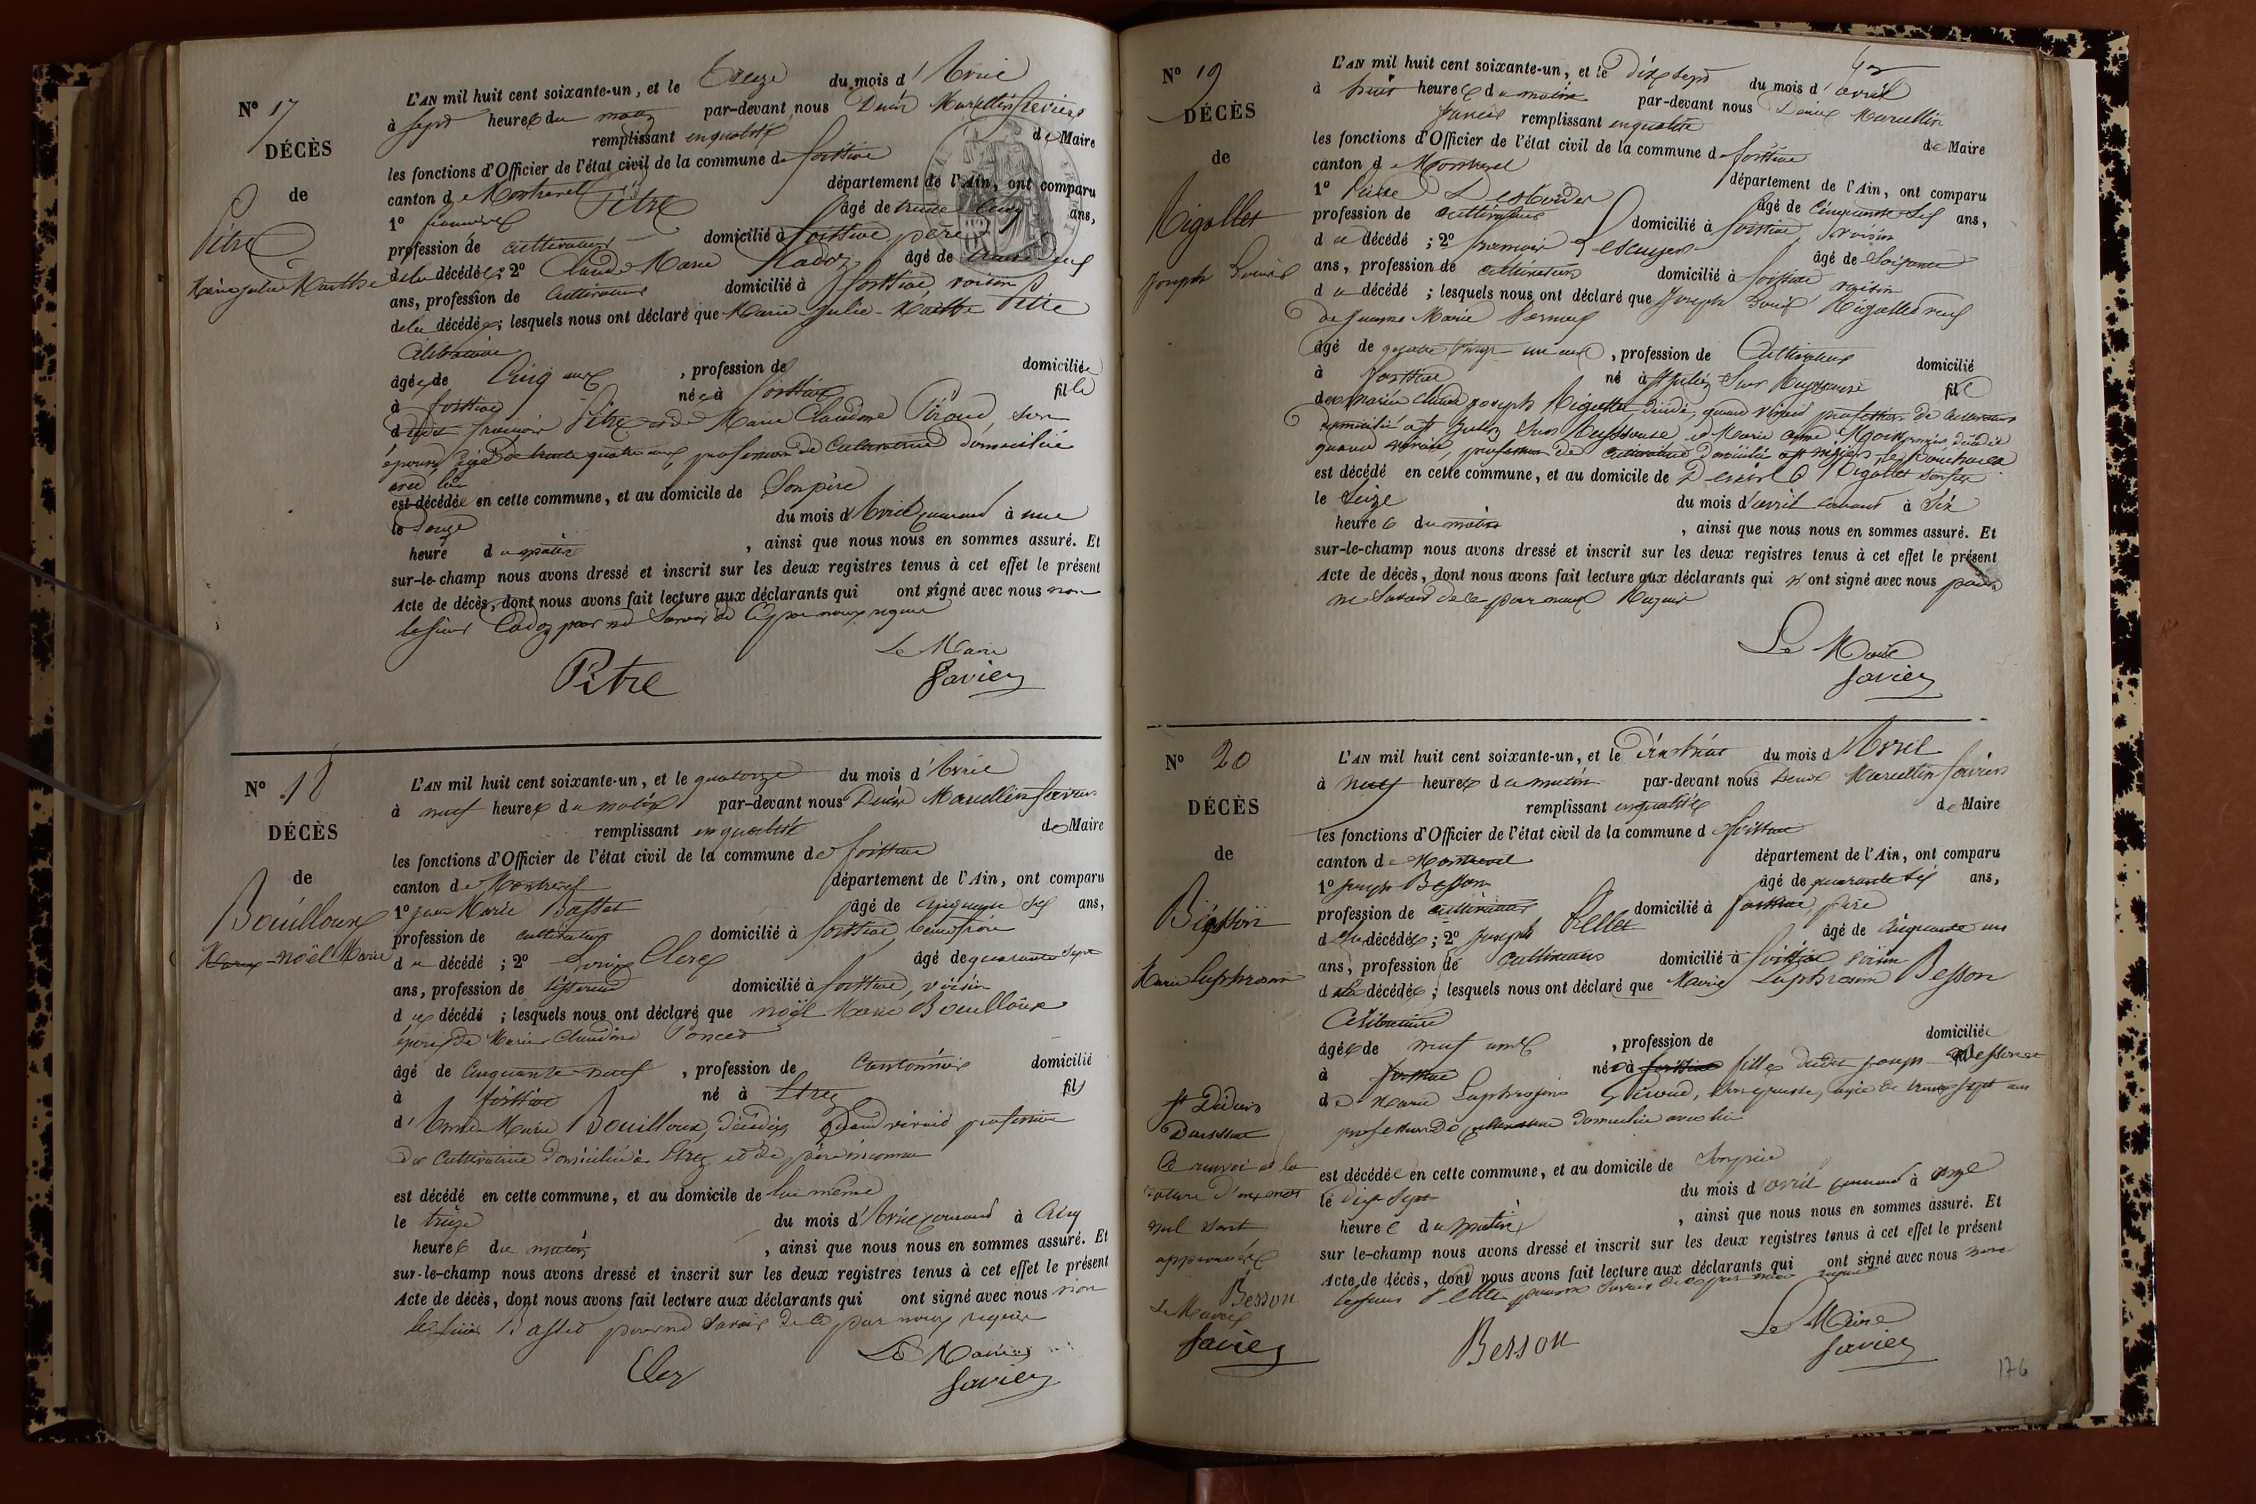 N° 17
DÉCÈS
de
Pitre
Marie Julie Marthe
L'AN mil huit cent soixante-un, et le treize du mois d'Avril
à sept heures du matin par-devant nous Denis Marcellin Favier
remplissant en qualité de Maire
les fonctions d'Officier de l'état civil de la commune de foissiat
canton de Montrevel département de l'Ain, ont comparu
1° françois Pitre âgé de trente cinq ans,
profession de cultivateur domicilié à foissiat père
de la décédée; 2° Claude Marie Cadoz âgé de
ans, profession de cultivateur domicilié à foissiat voisin
de la décédée; lesquels nous ont déclaré que Marie-Julie-Marthe Pitre
Célibataire
âgée de Cinq ans, profession de domiciliée
à foissiat née à foissiat fille
dudit françois Pitre et de Marie Claudine Péraud son
épouse âgée de trente quatre ans, profession de cultivatrice domiciliée
avec lui
est décédée en cette commune, et au domicile de son père
le douze du mois d'Avril courant à une
heure du matin, ainsi que nous nous en sommes assuré. Et
sur-le-champ nous avons dressé et inscrit sur les deux registres tenus à cet effet le présent
Acte de décès, dont nous avons fait lecture aux déclarants qui ont signé avec nous non
le sieur Cadoz pour ne savoir de ce par nous requis
Le Maire
Pitre Favier
N° 18
DÉCÈS
de
Bouilloux
Noël Marie
L'AN mil huit cent soixante-un, et le quatorze du mois d'Avril
à neuf heures du matin par-devant nous Denis Marcellin Favier
remplissant en qualité de Maire
les fonctions d'Officier de l'état civil de la commune de foissiat
canton de Montrevel département de l'Ain, ont comparu
1° Jean Marie Basset âgé de cinquante six ans,
profession de cultivateur domicilié à foissiat, beau frère
du décédé; 2° Louis Clerc âgé de quarante sept
ans, profession de tisserand domicilié à foissiat, voisin
du décédé; lesquels nous ont déclaré que noël Marie Bouilloux
époux de Marie Claudine Poncet
âgé de Cinquante neuf, profession de Cantonnier domicilié
à foissiat né à Etrez fils
d'Anne Marie Bouilloux, décédée, quand vivait profession
de cultivatrice domiciliée à Etrez et de père inconnu
est décédé en cette commune, et au domicile de lui même
le treize du mois d'Avril courant à Cinq
heures du matin, ainsi que nous nous en sommes assuré. Et
sur-le-champ nous avons dressé et inscrit sur les deux registres tenus à cet effet le présent
Acte de décès, dont nous avons fait lecture aux déclarants qui ont signé avec nous non
le sieur Basset pour ne savoir de ce par nous requis
Le Maire
Clerc Favier
N° 19
DÉCÈS
de
Rigollet
Joseph Louis
L'AN mil huit cent soixante-un, et le dix sept du mois d'avril
à huit heures du matin par-devant nous Denis Marcellin
Favier remplissant en qualité de Maire
les fonctions d'Officier de l'état civil de la commune de foissiat
canton de Montrevel département de l'Ain, ont comparu
1° âgé de Cinquante six ans,
profession de cultivateur domicilié à foissiat, voisin
du décédé; 2° françois Lescuyer âgé de soixante
ans, profession de cultivateur domicilié à foissiat voisin
du décédé; lesquels nous ont déclaré que Joseph Louis Rigollet veuf
de Jeanne Marie
âgé de quatre vingt un ans, profession de Cultivateur domicilié
à foissiat né à St Julien Sur Reyssouze fils
de Claude joseph Rigollet, décédé, quand vivait profession de cultivateur
domicilié à St Julien Sur Reyssouze, et de Marie décédée
quand vivait, profession de cultivatrice domiciliée à St
est décédé en cette commune, et au domicile de Rigollet son fils
le Seize du mois d'avril courant à Six
heures du matin, ainsi que nous nous en sommes assuré. Et
sur-le-champ nous avons dressé et inscrit sur les deux registres tenus à cet effet le présent
Acte de décès, dont nous avons fait lecture aux déclarants qui n'ont signé avec nous pour
ne savoir de ce par nous Requis
Le Maire
Favier
N° 20
DÉCÈS
de
Besson
Marie Euphrosine
L'AN mil huit cent soixante-un, et le dix huit du mois d'Avril
à neuf heures du matin par-devant nous Denis Marcellin Favier
remplissant en qualité de Maire
les fonctions d'Officier de l'état civil de la commune de foissiat
canton de Montrevel département de l'Ain, ont comparu
1° Joseph Besson âgé de quarante six ans,
profession de cultivateur domicilié à foissiat, père
de la décédée; 2° Joseph Pellet âgé de cinquante un
ans, profession de cultivateur domicilié à foissiat voisin
de la décédée; lesquels nous ont déclaré que Marie Euphrosine Besson
Célibataire
âgée de neuf ans, profession de domiciliée
à foissiat née à foissiat fille dudit joseph Besson et
de Marie Euphrosine Giroud, son épouse, âgée de trente sept ans
profession de cultivatrice domiciliée avec lui
est décédée en cette commune, et au domicile de son père
le dix sept du mois d'avril courant à onze
heures du matin, ainsi que nous nous en sommes assuré. Et
sur le-champ nous avons dressé et inscrit sur les deux registres tenus à cet effet le présent
Acte de décès, dont nous avons fait lecture aux déclarants qui ont signé avec nous non
le sieur Pellet pour ne savoir de ce par nous requis
Le Maire
Besson Favier
St Didier
Daussiat
Ce renvoi et la
rature d'un mot
nul sont
approuvés
Besson
Le Maire
Favier
176